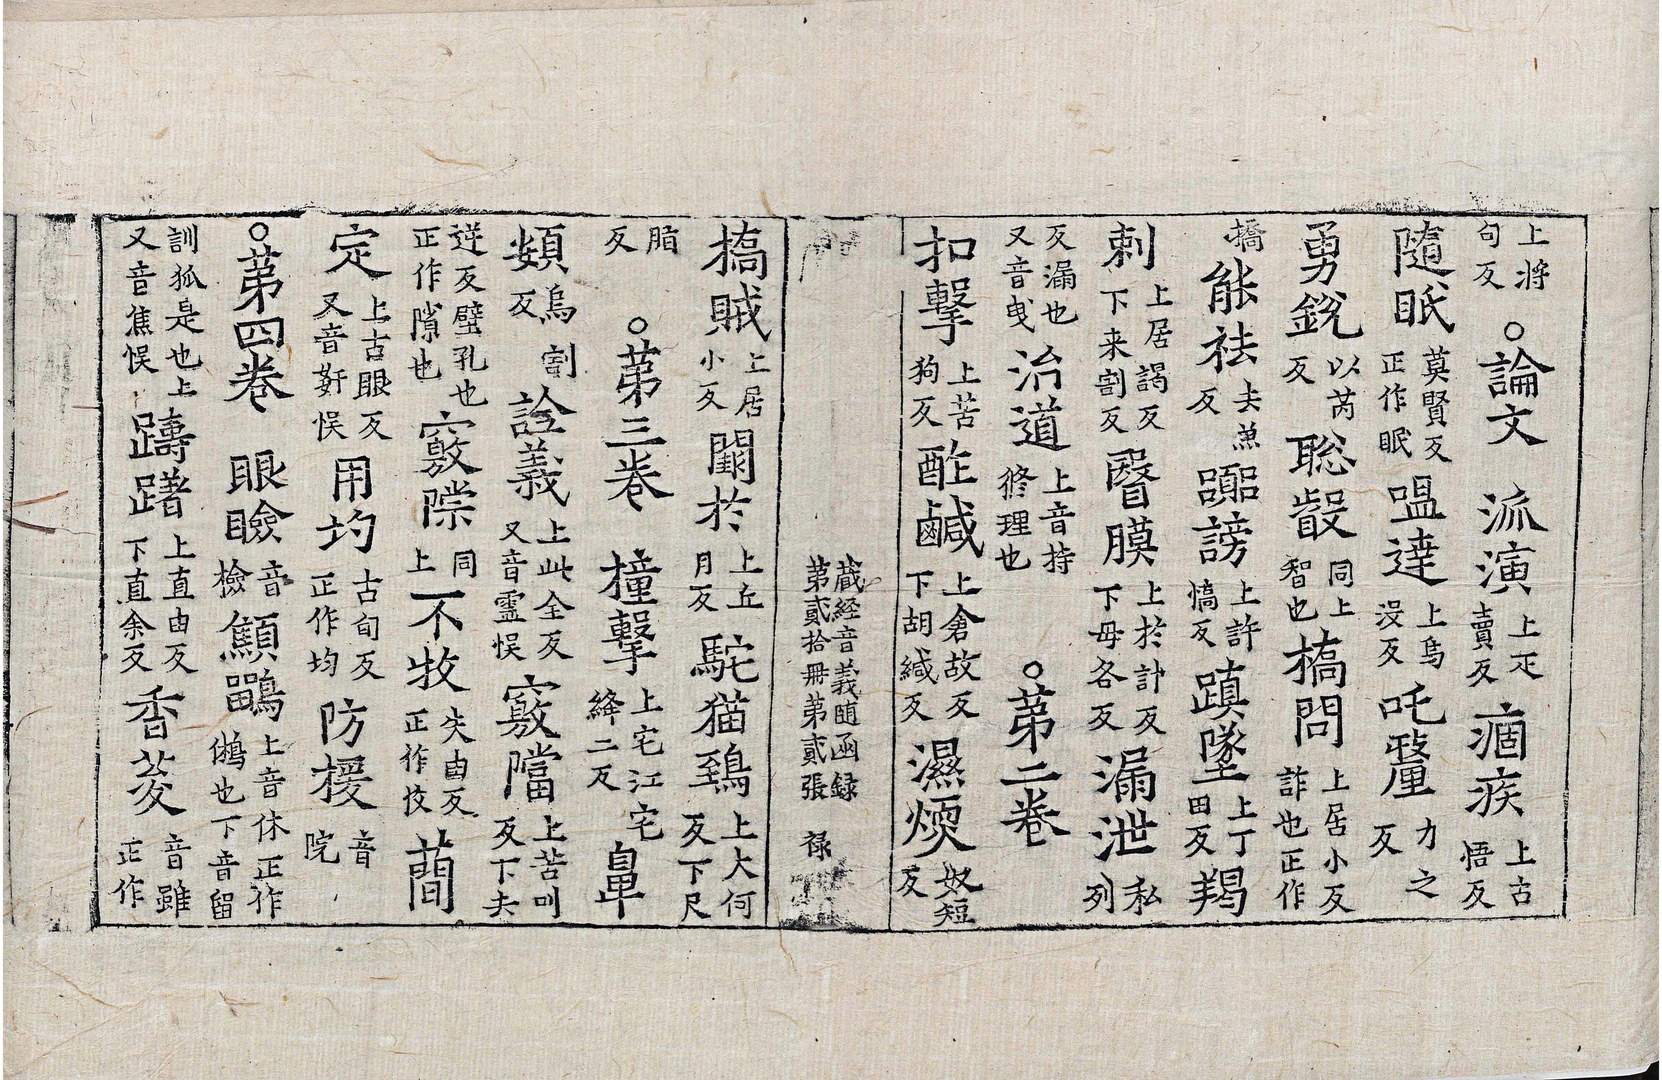 上將句反　○論文　流演上疋賣反　痼疾上古悟反
隨眠莫賢反正作眠　嗢達上烏沒反　吒氂力之反
勇銳以芮反　聡叡同上智也　撟問上居小反詐也正作
撟　能祛去魚反　謗上許憍反　蹎墜上丁田反　羯
刺上居謁反下来割反　瞖膜上於計反下毋各反　漏泄私列
反漏也又音曳　治道上音持修理也　○第二卷
扣擊上苦狗反　酢鹹上倉故反下胡緘反　濕煗奴短反
蔵経音義随函録第貳拾冊第貳張　禄
撟賊上居小反　闕於上丘月反　駝猫鵄上大何反下尺
脂反　○第三卷　撞擊上宅江宅絳二反　鼻
頞烏割反　詮義上此全反又音靈悮　竅隙上苦叫反下去
逆反壁孔也正作隙也　竅隙同上　不牧失由反正作收　蕳
定上古眼反又音姧悮　用均古旬反正作均　防援音院
○第四卷　眼瞼音檢　鸓上音休正作鵂也下音留
訓狐是也上又音焦悮　躊躇上直由反下直余反　香荾音雖正作